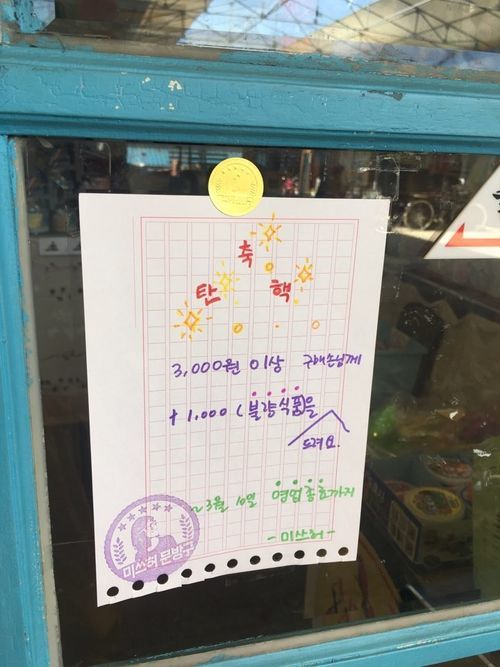 축
탄 핵
3,000원 이상 구매손님께
+1,000 (불량식품)을
드려요.
~3월 10일 영업종료까지
-미쓰허-
미쓰허 문방구